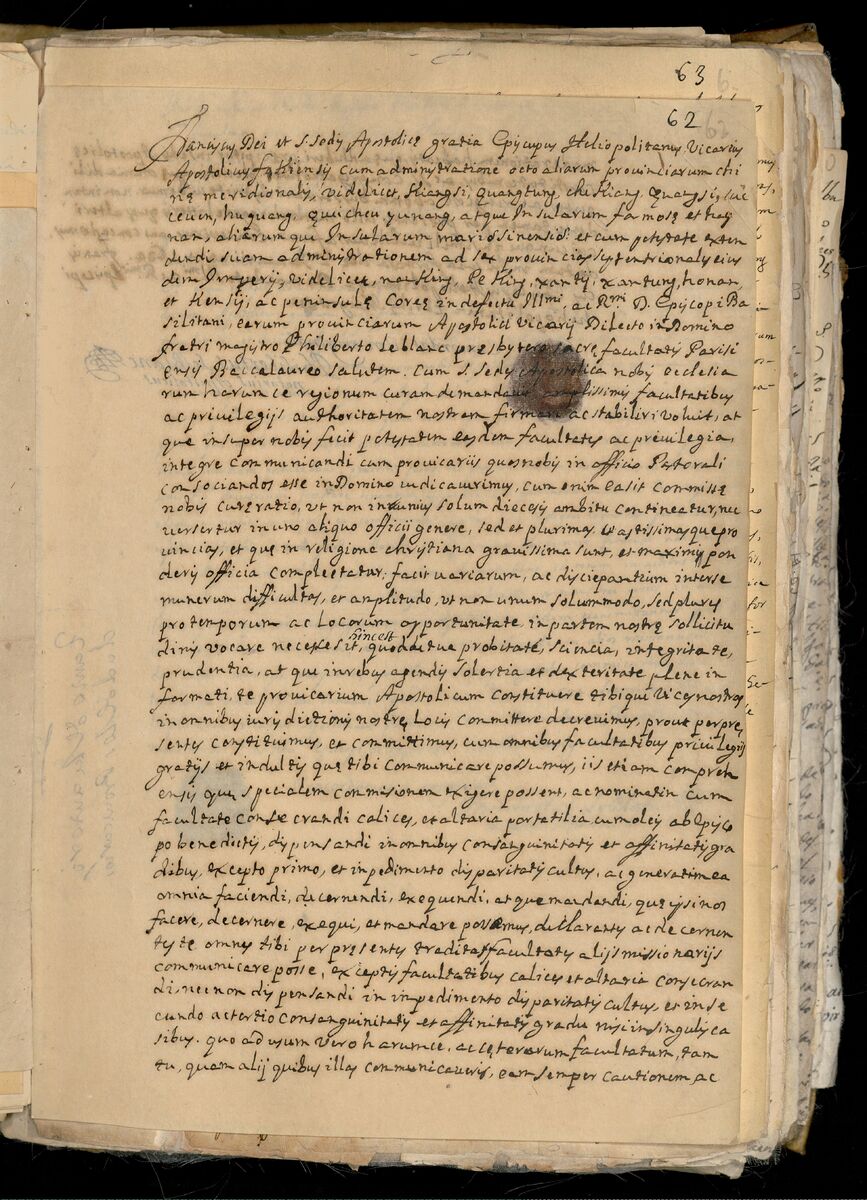 63
62
Franciscus Dei et S. Sedis Apostolicę gratia Episcopus Heliopolitanus Vicarius
Apostolicus fokiensis cum administratione octo aliarum provinciarum chi
nę meridionalis, videlicet, Kiangsi, Quangtung, che Kiang, Quangsi, sut
ceven, huquang, Quvicheu yunang, atque Insularum famosę et hay
nan, aliarum qui Insularum maris sinensis: et cum potestate exten
dendi suam administrationem ad sex provincias septentrionalis eius
dem Imperij, videlicet, nanking, Peking, xantij, xantung, honan,
et Kensij, ac peninsulę Coreę in defectu Illmi. ac Rmi. D. Episcopi Ba
silitani, earum provinciarum Apostolici Vicarij Dilecto in Domino
fratri magistro Philiberto leblanc presbytero sacrę facultatis Parisi
ensis Baccalaureo salutem. Cum S. Sedes Apostolica nobis ecclesia
rum harum ce regionum curam demandans amplissimis facultatibus
ac privilegijs authoritatem nostram firmari ac stabiliri voluit, at
que insuper nobis fecit potestatem easdem facultates ac previlegia,
integre communicandi cum provicariis quos nobis in officio Pastorali
consociandos esse in Domino iudicaverimus, cum enim ea sit commissę
nobis curę ratio, ut non in unius solum diecesis ambitu contineatur, nec
versetur in uno aliquo officii genere, sed et plurimas, vastissimasque pro
vincias, et quę in religione christiana gravissima sunt, et maximis pon
deris officia complectatur; facit variarum, ac discrepantium inter se
munerum difficultas, et amplitudo, ut non unum solummodo, sed plures
pro temporum ac locorum opportunitate in partem nostrę sollicitu
dinis vocare necesse sit, hinc est quod de tua probitate, sciencia, integritate,
prudentia, at que in rebus agendis solertia et dexteritate plene in
formati, te provicarium Apostolicum constituere tibi qui vices nostras
in omnibus iurisdictionis nostrę locis committere decrevimus, prout per prę
sentes constituimus, et committimus, cum omnibus facultatibus privilegijs
gratijs et indultis quę tibi communicare possumus, iis etiam compreh
ensis quę specialem conmisionem exigere possent, ac nominatim cum
facultate conse crandi calices, et altaria portatilia cum oleis ab Episco
po benedictis, dispensandi in omnibus consanguinitatis et affinitatis gra
dibus, excepto primo, et inpedimento disparitatis cultus, ac generatim ea
omnia faciendi, decernendi, exequendi, atque mandandi, quę ipsi nos
facere, decernere, exequi, et mandare possemus, declarantes ac decernen
tes te omnes tibi per presentes traditas facultates alijs missionarijs
communicare posse, exceptis facultatibus calices et altaria consecran
di, nec non dispensandi in inpedimento disparitatis cultus, et in se
cundo ac tertio consanguinitatis et affinitatis gradu nisi in singulis ca
sibus. quo ad usum vero harumce, ac cęterarum facultatum, tam
tu, quam alij quibus illas communicaveris, eam semper cautionem, ac